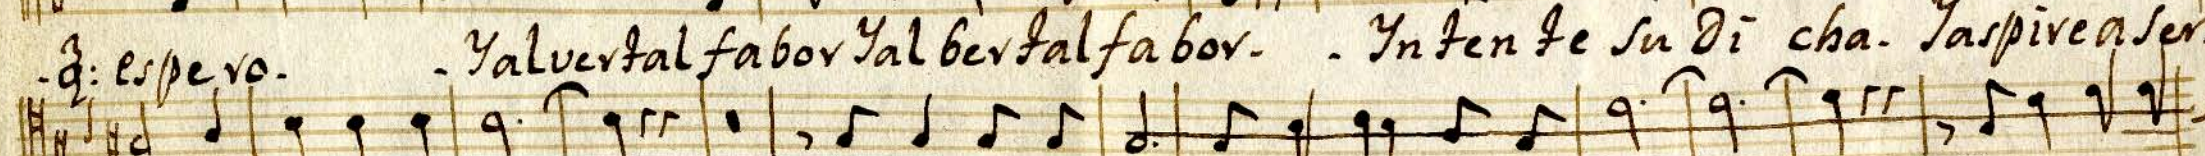 -q: espero. - Yalvertal fabor Yalbertal fabor- - Yntente su Di cha. Yaspire a ser.